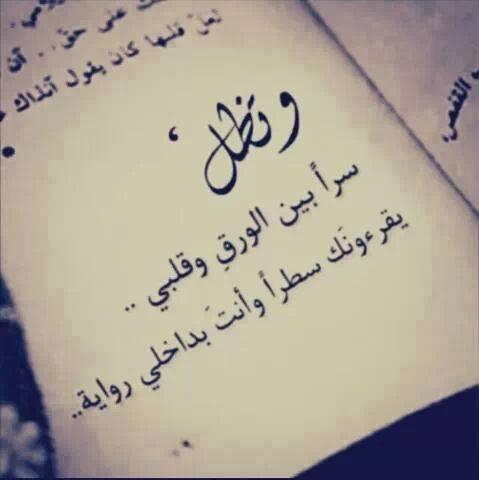 على حق .. آن
لعل قلبها كان يقول آنذاك
القفص،
وتظل ،
سراً بين الورقِ وقلبي ..
يقرءونَك سطراً وأنتَ بداخلي رواية..